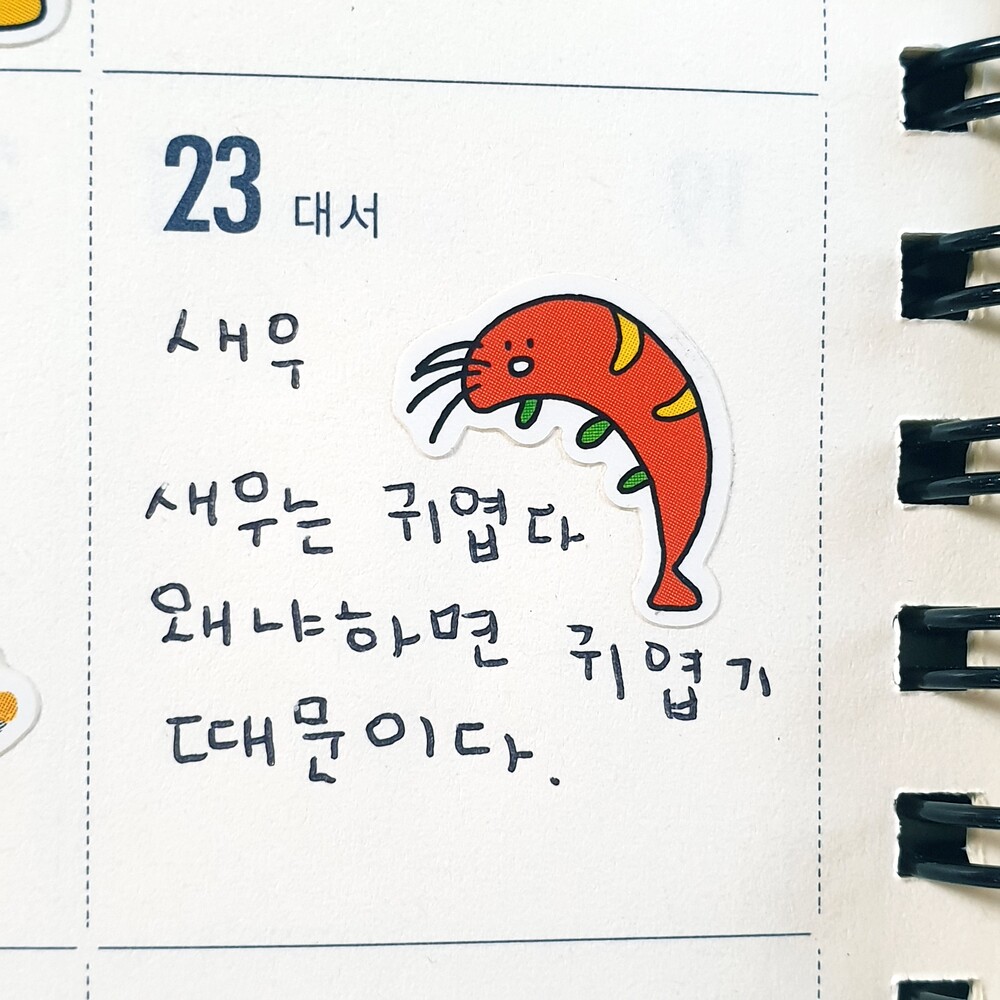 23 대서
새우
새우는 귀엽다
왜냐하면 귀엽기
때문이다.